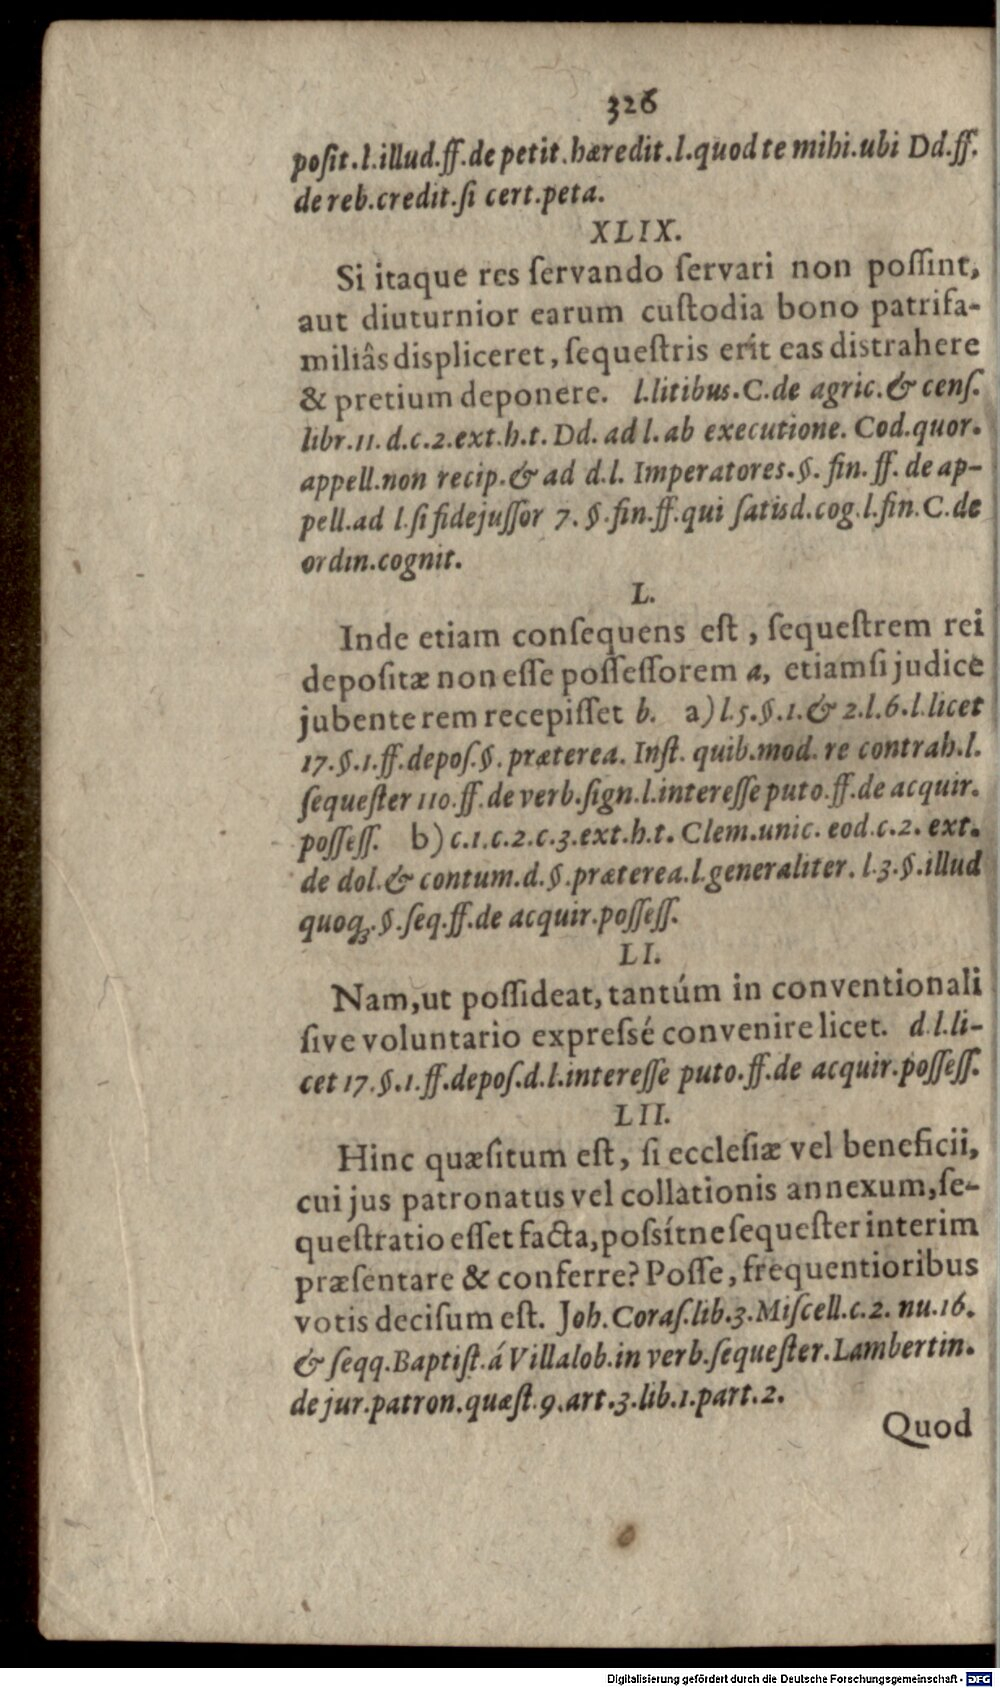 326
poſit.l.illud.ff.de petit.hæredit.l.quod te mihi.ubi Dd.ff.
de reb.credit.ſi cert.peta.
XLIX.
Si itaque res ſervando ſervari non poſſint,
aut diuturnior earum cuſtodia bono patrifa-
miliâs displiceret, ſequeſtris erit eas distrahere
& pretium deponere. l.litibus.C.de agric.& cenſ.
libr.11.d.c.2.ext.h.t. Dd. ad l.ab executione. Cod.quor.
appell.non recip.& ad d.l. Imperatores.§. fin. ff. de ap-
pell.ad l.ſi fidejuſſor 7. §.fin.ff.qui ſatisd.cog.l.fin.C.de
ordin.cognit.
L.
Inde etiam conſequens eſt, ſequeſtrem rei
depoſitæ non eſſe poſſeſſorem a, etiamſi judice
jubente rem recepiſſet b. a) l.5.§.1.& 2.l.6.l.licet
17.§.1.ff.depoſ.§. præterea. Inſt. quib.mod. re contrah.l.
ſequeſter 110.ff.de verb.ſign.l.intereſſe puto.ff.de acquir.
poſſeſſ. b) c.1.c.2.c.3.ext.h.t. Clem.unic. eod.c.2. ext.
de dol.& contum.d.§.præterea.l.generaliter. l.3.§.illud
quoqꝫ.§.ſeq.ff.de acquir.poſſeſſ.
LI.
Nam,ut poſſideat, tantúm in conventionali
ſive voluntario expreſsé convenire licet. d.l.li-
cet 17.§.1.ff.depoſ.d.l.intereſſe puto.ff.de acquir.poſſeſſ.
LII.
Hinc quæſitum eſt, ſi eccleſiæ vel beneficii,
cui jus patronatus vel collationis annexum,ſe-
queſtratio eſſet facta,poſsítne ſequeſter interim
præſentare & conferre? Poſſe, frequentioribus
votis deciſum eſt. Joh. Coraſ.lib.3.Miſcell.c.2. nu.16.
& ſeqq.Baptiſt.á Villalob.in verb.ſequeſter.Lambertin.
de jur.patron.quæſt.9.art.3.lib.1.part.2.
Quod
Digitalisierung gefördert durch die Deutsche Forschungsgemeinschaft - DFG